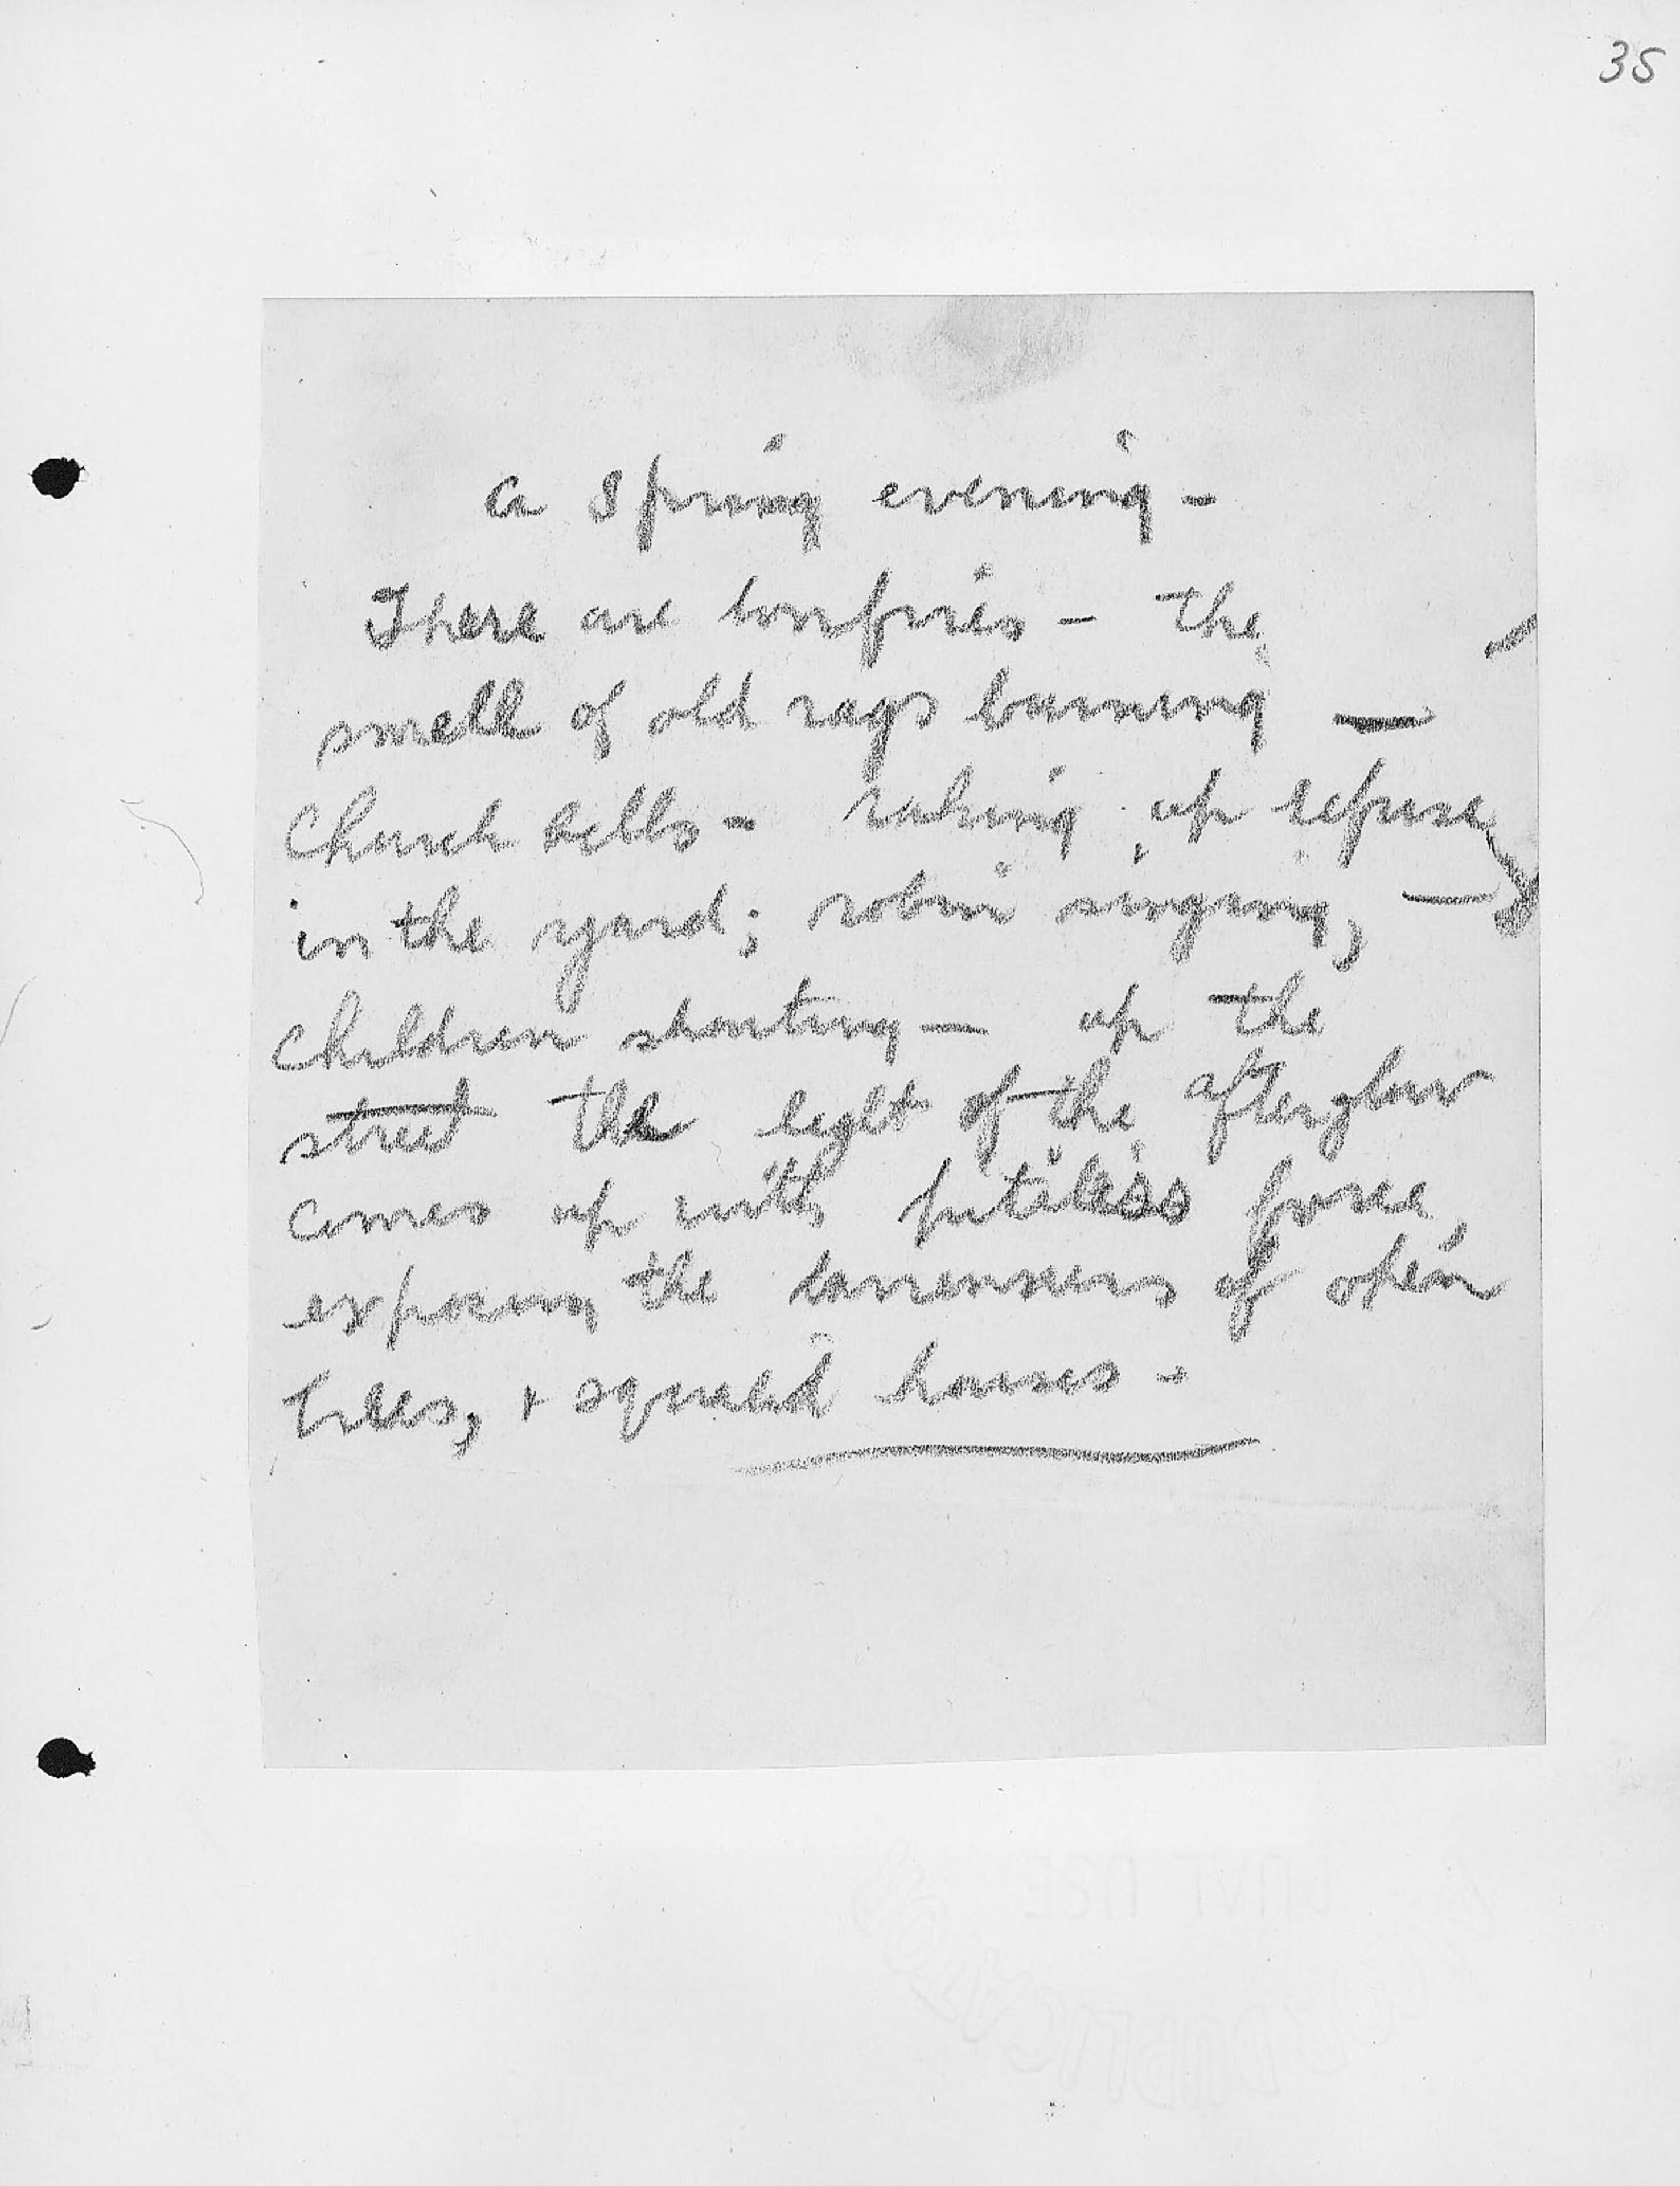 35
a Spring evening -
There are bonfires - the
smell of old rags burning —
Church bells - raking up refuse
in the yard; robin singing, —
children shouting — up the
street the light of the afterglow
comes up with pitiless force,
exposing the barrenness of
trees, + squalid houses -